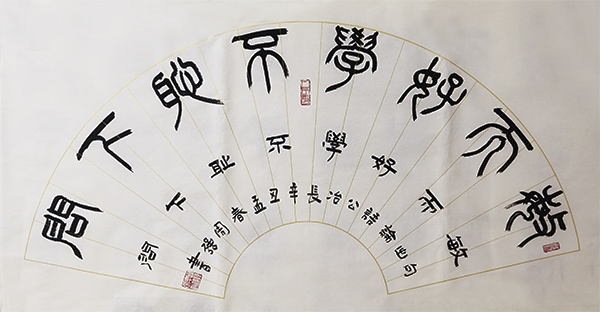 敏而好學不恥下問
敏而好學不恥下問
句出論語公冶長辛丑孟春周強書